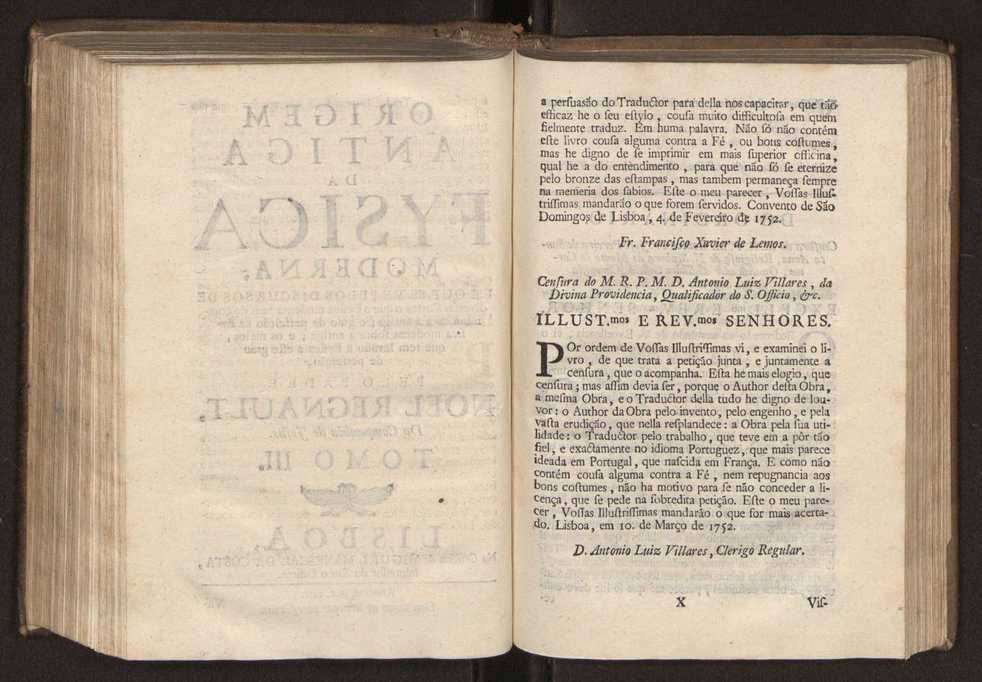 a persuasão do Traductor para della nos capacitar, que tão
efficaz he o seu estylo, cousa muito difficultosa em quem
fielmente traduz. Em huma palavra. Não só não contém
este livro cousa alguma contra a Fé, ou bons costumes,
mas he digno de se imprimir em mais superior officina,
qual he a do entendimento, para que não só se eternize
pelo bronze das estampas, mas tambem permaneça sempre
na memeria dos sabios. Este o meu parecer, Vossas Illus-
trissimas mandarão o que forem servidos. Convento de São
Domingos de Lisboa, 4. de Fevereiro de 1752.
Fr. Francisco Xavier de Lemos.
Censura do M. R. P. M. D. Antonio Luiz Villares, da
Divina Providencia, Qualificador do S. Officio, &c.
ILLUST.mos E REV.mos SENHORES.
POr ordem de Vossas Illustrissimas vi, e examinei o li-
vro, de que trata a petição junta, e juntamente a
censura, que o acompanha. Esta he mais elogio, que
censura; mas assim devia ser, porque o Author desta Obra,
a mesma Obra, e o Traductor della tudo he digno de lou-
vor: o Author da Obra pelo invento, pelo engenho, e pela
vasta erudição, que nella resplandece: a Obra pela sua uti-
lidade: o Traductor pelo trabalho, que teve em a pôr tão
fiel, e exactamente no idioma Portuguez, que mais parece
ideada em Portugal, que nascida em França. E como não
contém cousa alguma contra a Fé, nem repugnancia aos
bons costumes, não ha motivo para se não conceder a li-
cença, que se pede na sobredita petição. Este o meu pare-
cer, Vossas Illustrissimas mandarão o que for mais acerta-
do. Lisboa, em 10. de Março de 1752.
D. Antonio Luiz Villares, Clerigo Regular.
X Vis-